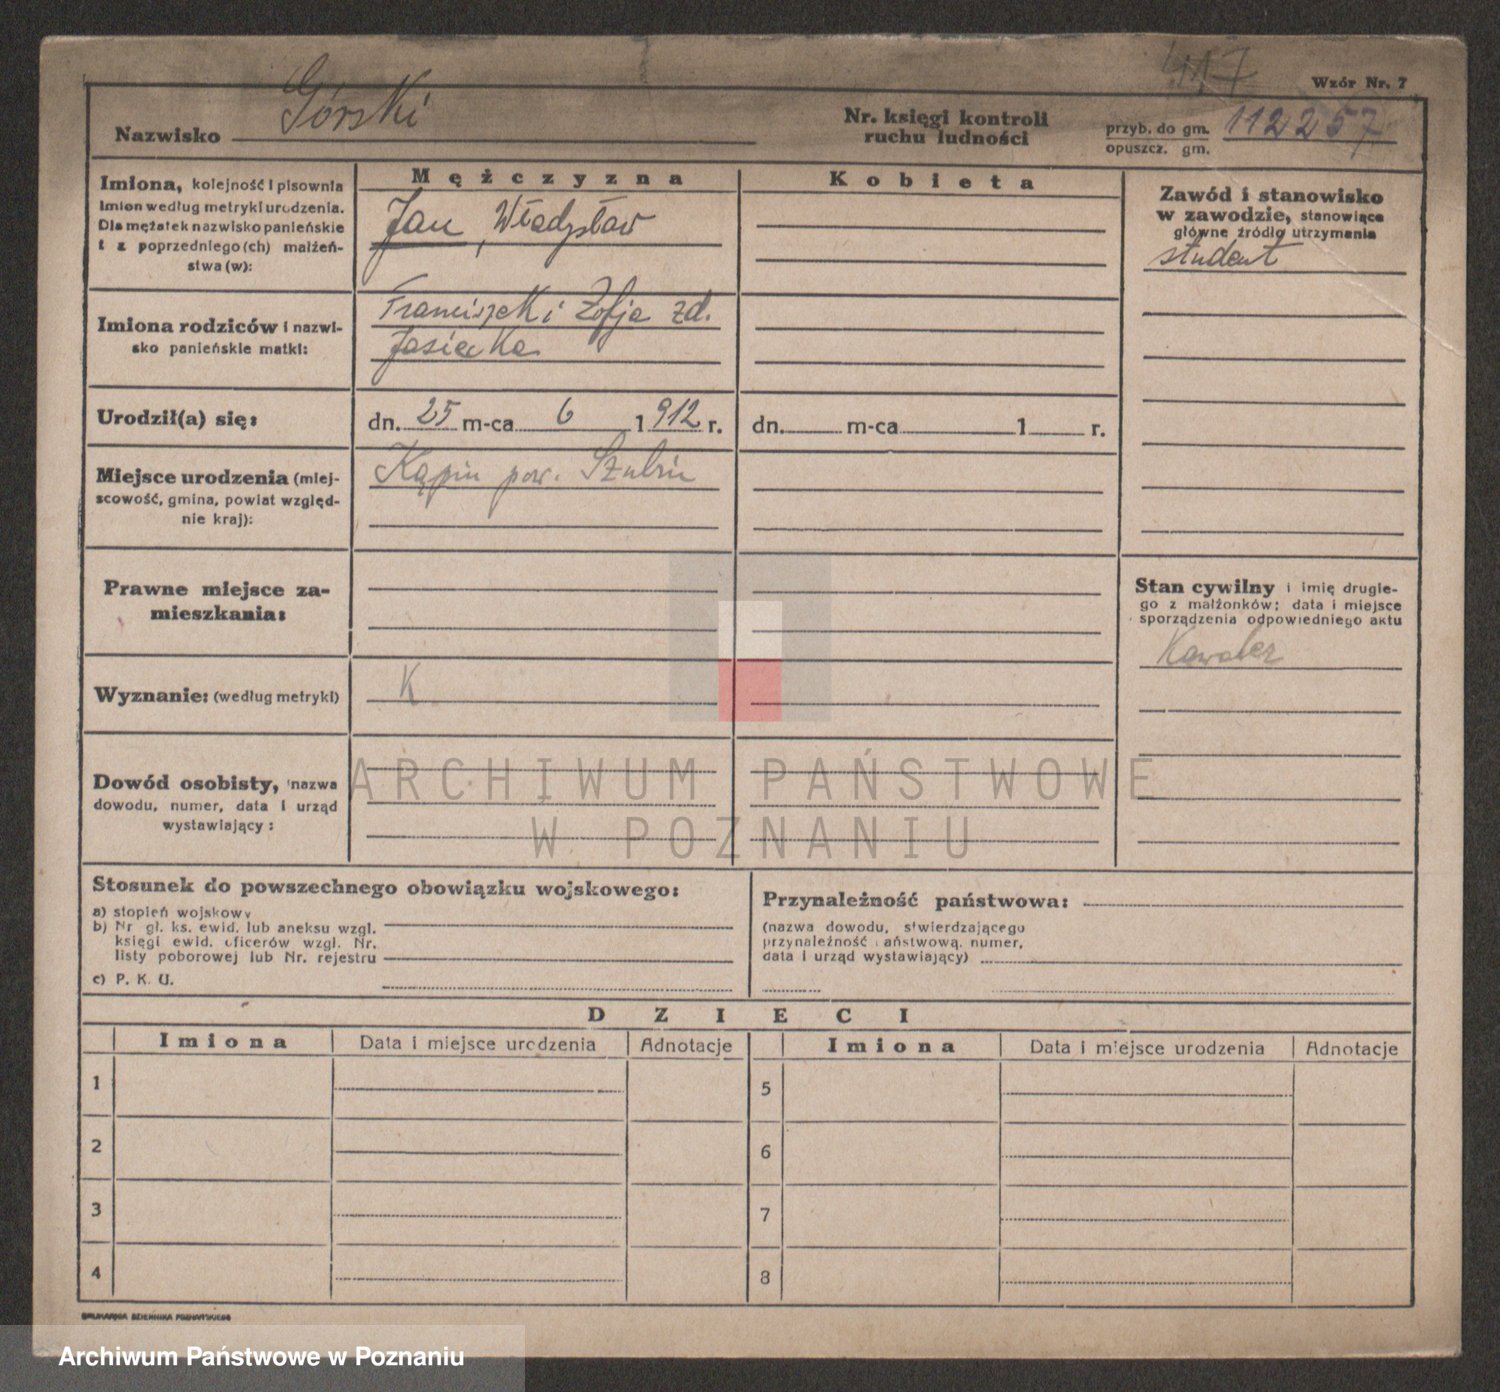 417
Wzór Nr. 7
Nazwisko Górski
Nr. księgi kontroli
ruchu ludności
przyb. do gm. 112257
opuszcz. gm.
Imiona, kolejność i pisownia
imion według metryki urodzenia.
Dla mężatek nazwisko panieńskie
i z poprzedniego (ch) małżeń-
stwa (w):
Mężczyzna
Jan, Władysław
Kobieta
Zawód i stanowisko
w zawodzie, stanowiące
główne źródło utrzymania
student
Imiona rodziców i nazwi-
sko panieńskie matki:
Franciszek i Zofja zd.
Jasiecka
Urodził(a) się:
dn. 25 m-ca 6 1912 r.
dn. m-ca 1 r.
Miejsce urodzenia (miej-
scowość, gmina, powiat względ-
nie kraj):
Kąpin pow. Szubin
Prawne miejsce za-
mieszkania:
Stan cywilny i imię drugie-
go z małżonków; data i miejsce
sporządzenia odpowiedniego aktu
Kawaler
Wyznanie: (według metryki)
K
Dowód osobisty, nazwa
dowodu, numer, data i urząd
wystawiający:
ARCHIWUM PAŃSTWOWE
W POZNANIU
Stosunek do powszechnego obowiązku wojskowego:
a) stopień wojskowy
b) Nr gł. ks. ewid. lub aneksu wzgl.
księgi ewid. oficerów wzgl. Nr.
listy poborowej lub Nr. rejestru
c) P. K. U.
Przynależność państwowa:
(nazwa dowodu, stwierdzającego
przynależność państwową, numer,
data i urząd wystawiający)
DZIECI
Imiona Data i miejsce urodzenia Adnotacje Imiona Data i miejsce urodzenia Adnotacje
1 5
2 6
3 7
4 8
DRUKARNIA DZIENNIKA POZNAŃSKIEGO
Archiwum Państwowe w Poznaniu